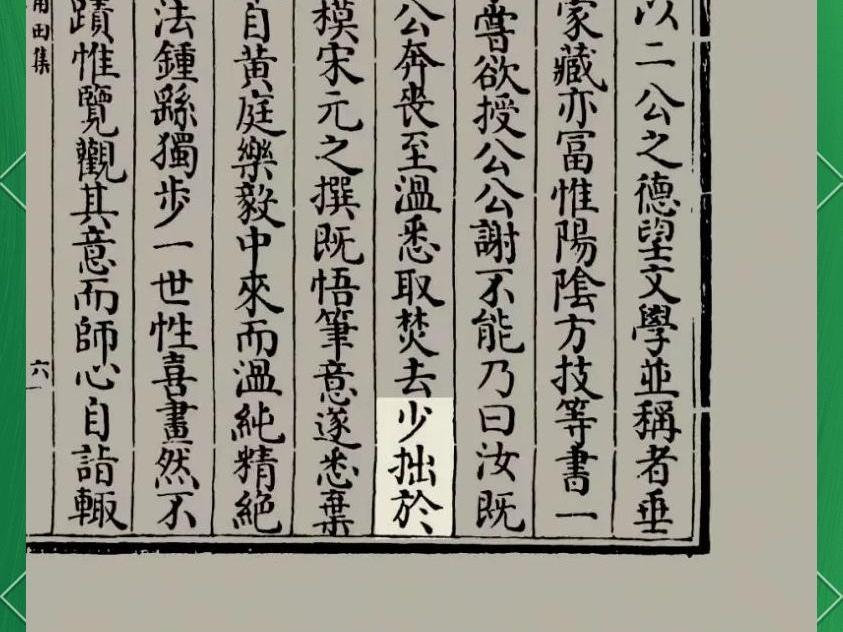 以二公之德望文學並稱者垂
家藏亦富惟陽陰方技等書一
嘗欲授公公謝不能乃曰汝既
公奔喪至溫悉取焚去少拙於
模宋元之撰既悟筆意遂悉棄
自黃庭樂毅中來而溫純精絕
法鍾繇獨步一世性喜畫然不
蹟惟覽觀其意而師心自詣輙
甫田集
六